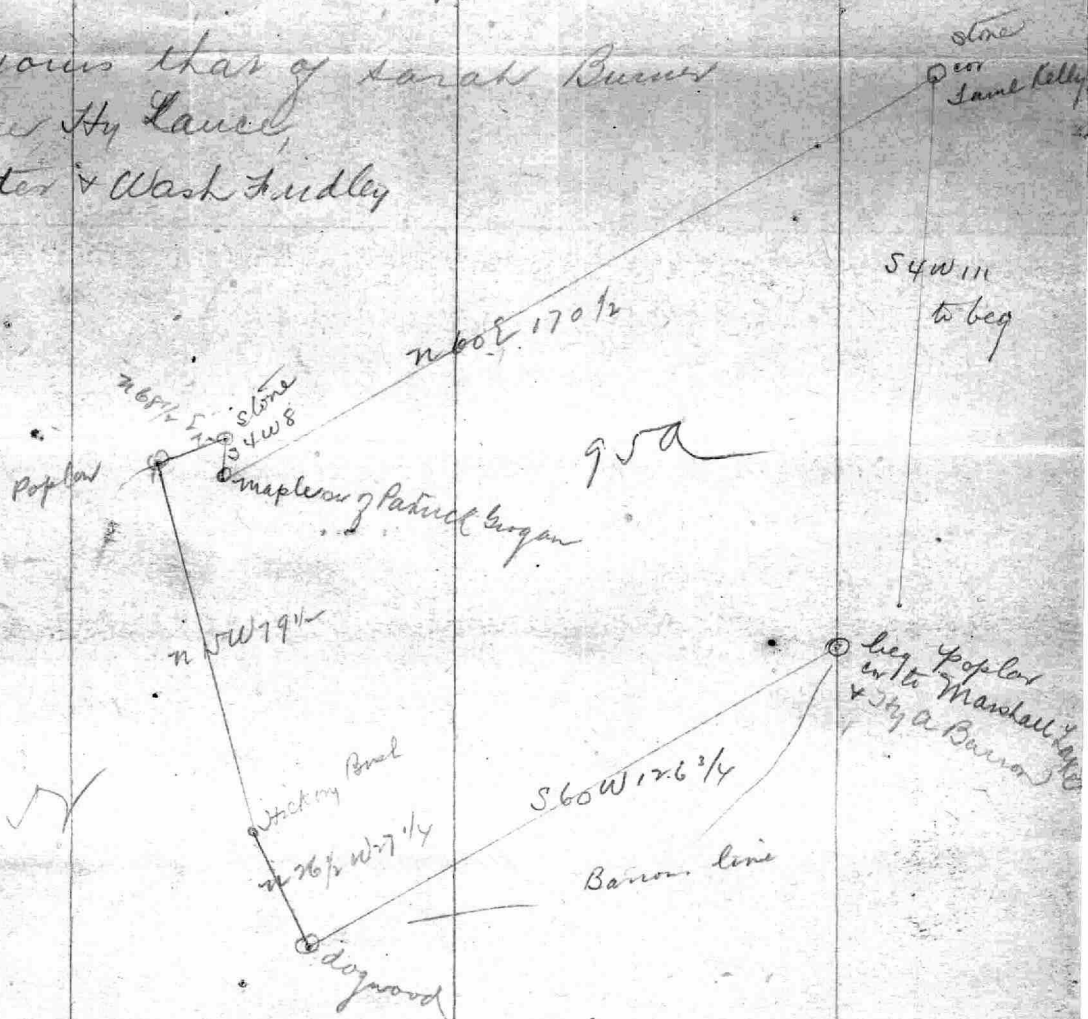 that of Sarah Burner
Hy Lance,
& Wash Findley
stone
cor
Kelly
S4W 111
to beg
N 60 E 170 1/2
N 68 1/2 E
stone
S4W8
Poplar
maple cor of Patrick Grogan
95 a
N 5 W 79 1/2
beg poplar
cor to Marshall
& Hy A Barron
Hickory
S 60 W 126 3/4
N 26 1/2 W 27 1/4
Barrons line
dogwood